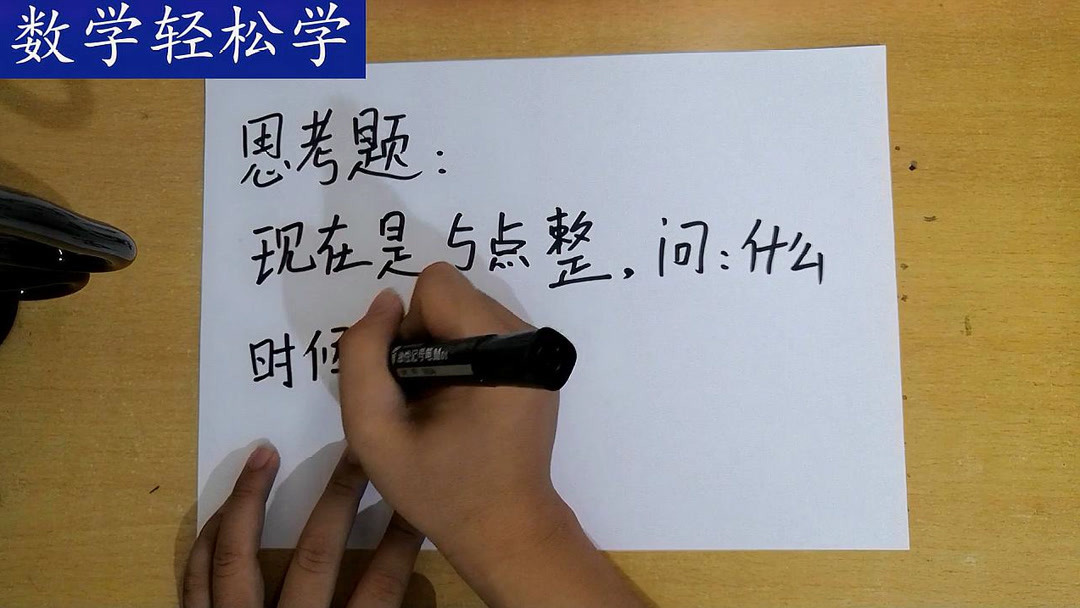 数学轻松学
思考题：
现在是5点整，问：什么
时候